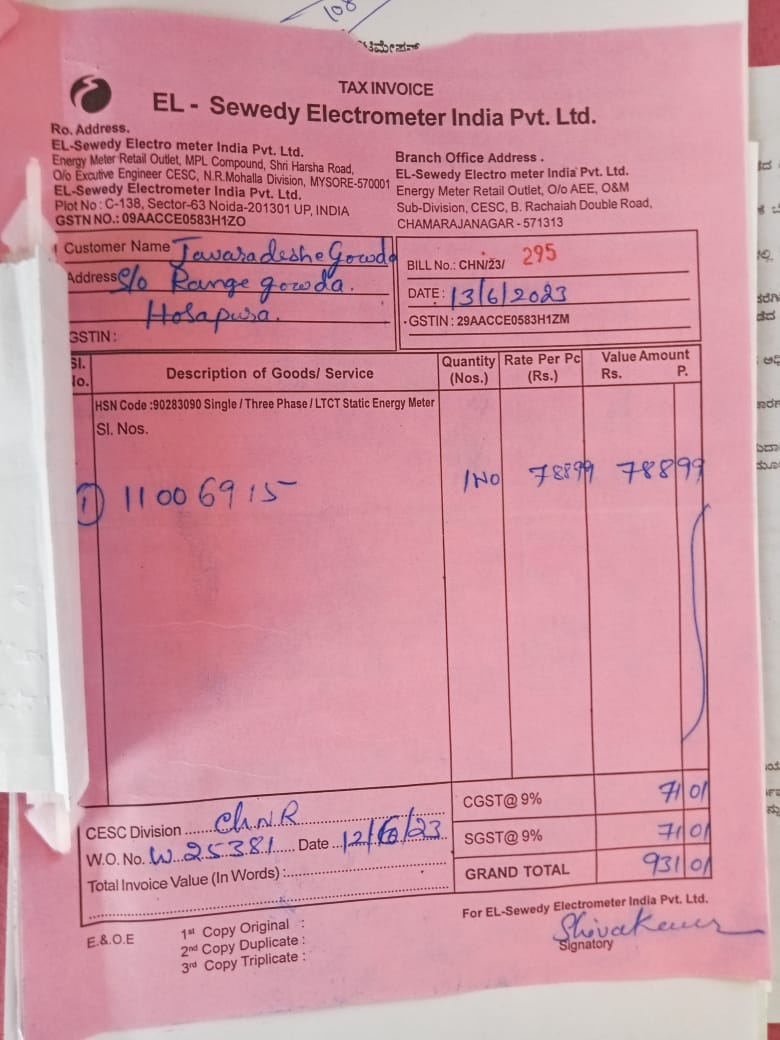 108
TAX INVOICE
EL - Sewedy Electrometer India Pvt. Ltd.
Ro. Address.
EL-Sewedy Electro meter India Pvt. Ltd.
Energy Meter Retail Outlet, MPL Compound, Shri Harsha Road,
O/o Excutive Engineer CESC, N.R.Mohalla Division, MYSORE-570001
EL-Sewedy Electrometer India Pvt. Ltd.
Plot No : C-138, Sector-63 Noida-201301 UP, INDIA
GSTN NO.: 09AACCE0583H1ZO
Branch Office Address .
EL-Sewedy Electro meter India Pvt. Ltd.
Energy Meter Retail Outlet, O/o AEE, O&M
Sub-Division, CESC, B. Rachaiah Double Road,
CHAMARAJANAGAR - 571313
Customer Name JavaradesheGowda
Address S/o Range gowda.
Hosapura.
GSTIN :
BILL No.: CHN/23/ 295
DATE : 13/6/2023
GSTIN : 29AACCE0583H1ZM
Sl. No. Description of Goods/ Service Quantity (Nos.) Rate Per Pc (Rs.) Value Amount Rs. P.
HSN Code :90283090 Single / Three Phase / LTCT Static Energy Meter
Sl. Nos.
1 11006915 1No 78899 788 99
CGST@ 9% 71 01
SGST@ 9% 71 01
GRAND TOTAL 931 01
CESC Division ChNR
W.O. No. W 25381 Date 12/6/23
Total Invoice Value (In Words) :
For EL-Sewedy Electrometer India Pvt. Ltd.
Shivakumar
Signatory
E.&.O.E
1st Copy Original :
2nd Copy Duplicate :
3rd Copy Triplicate :